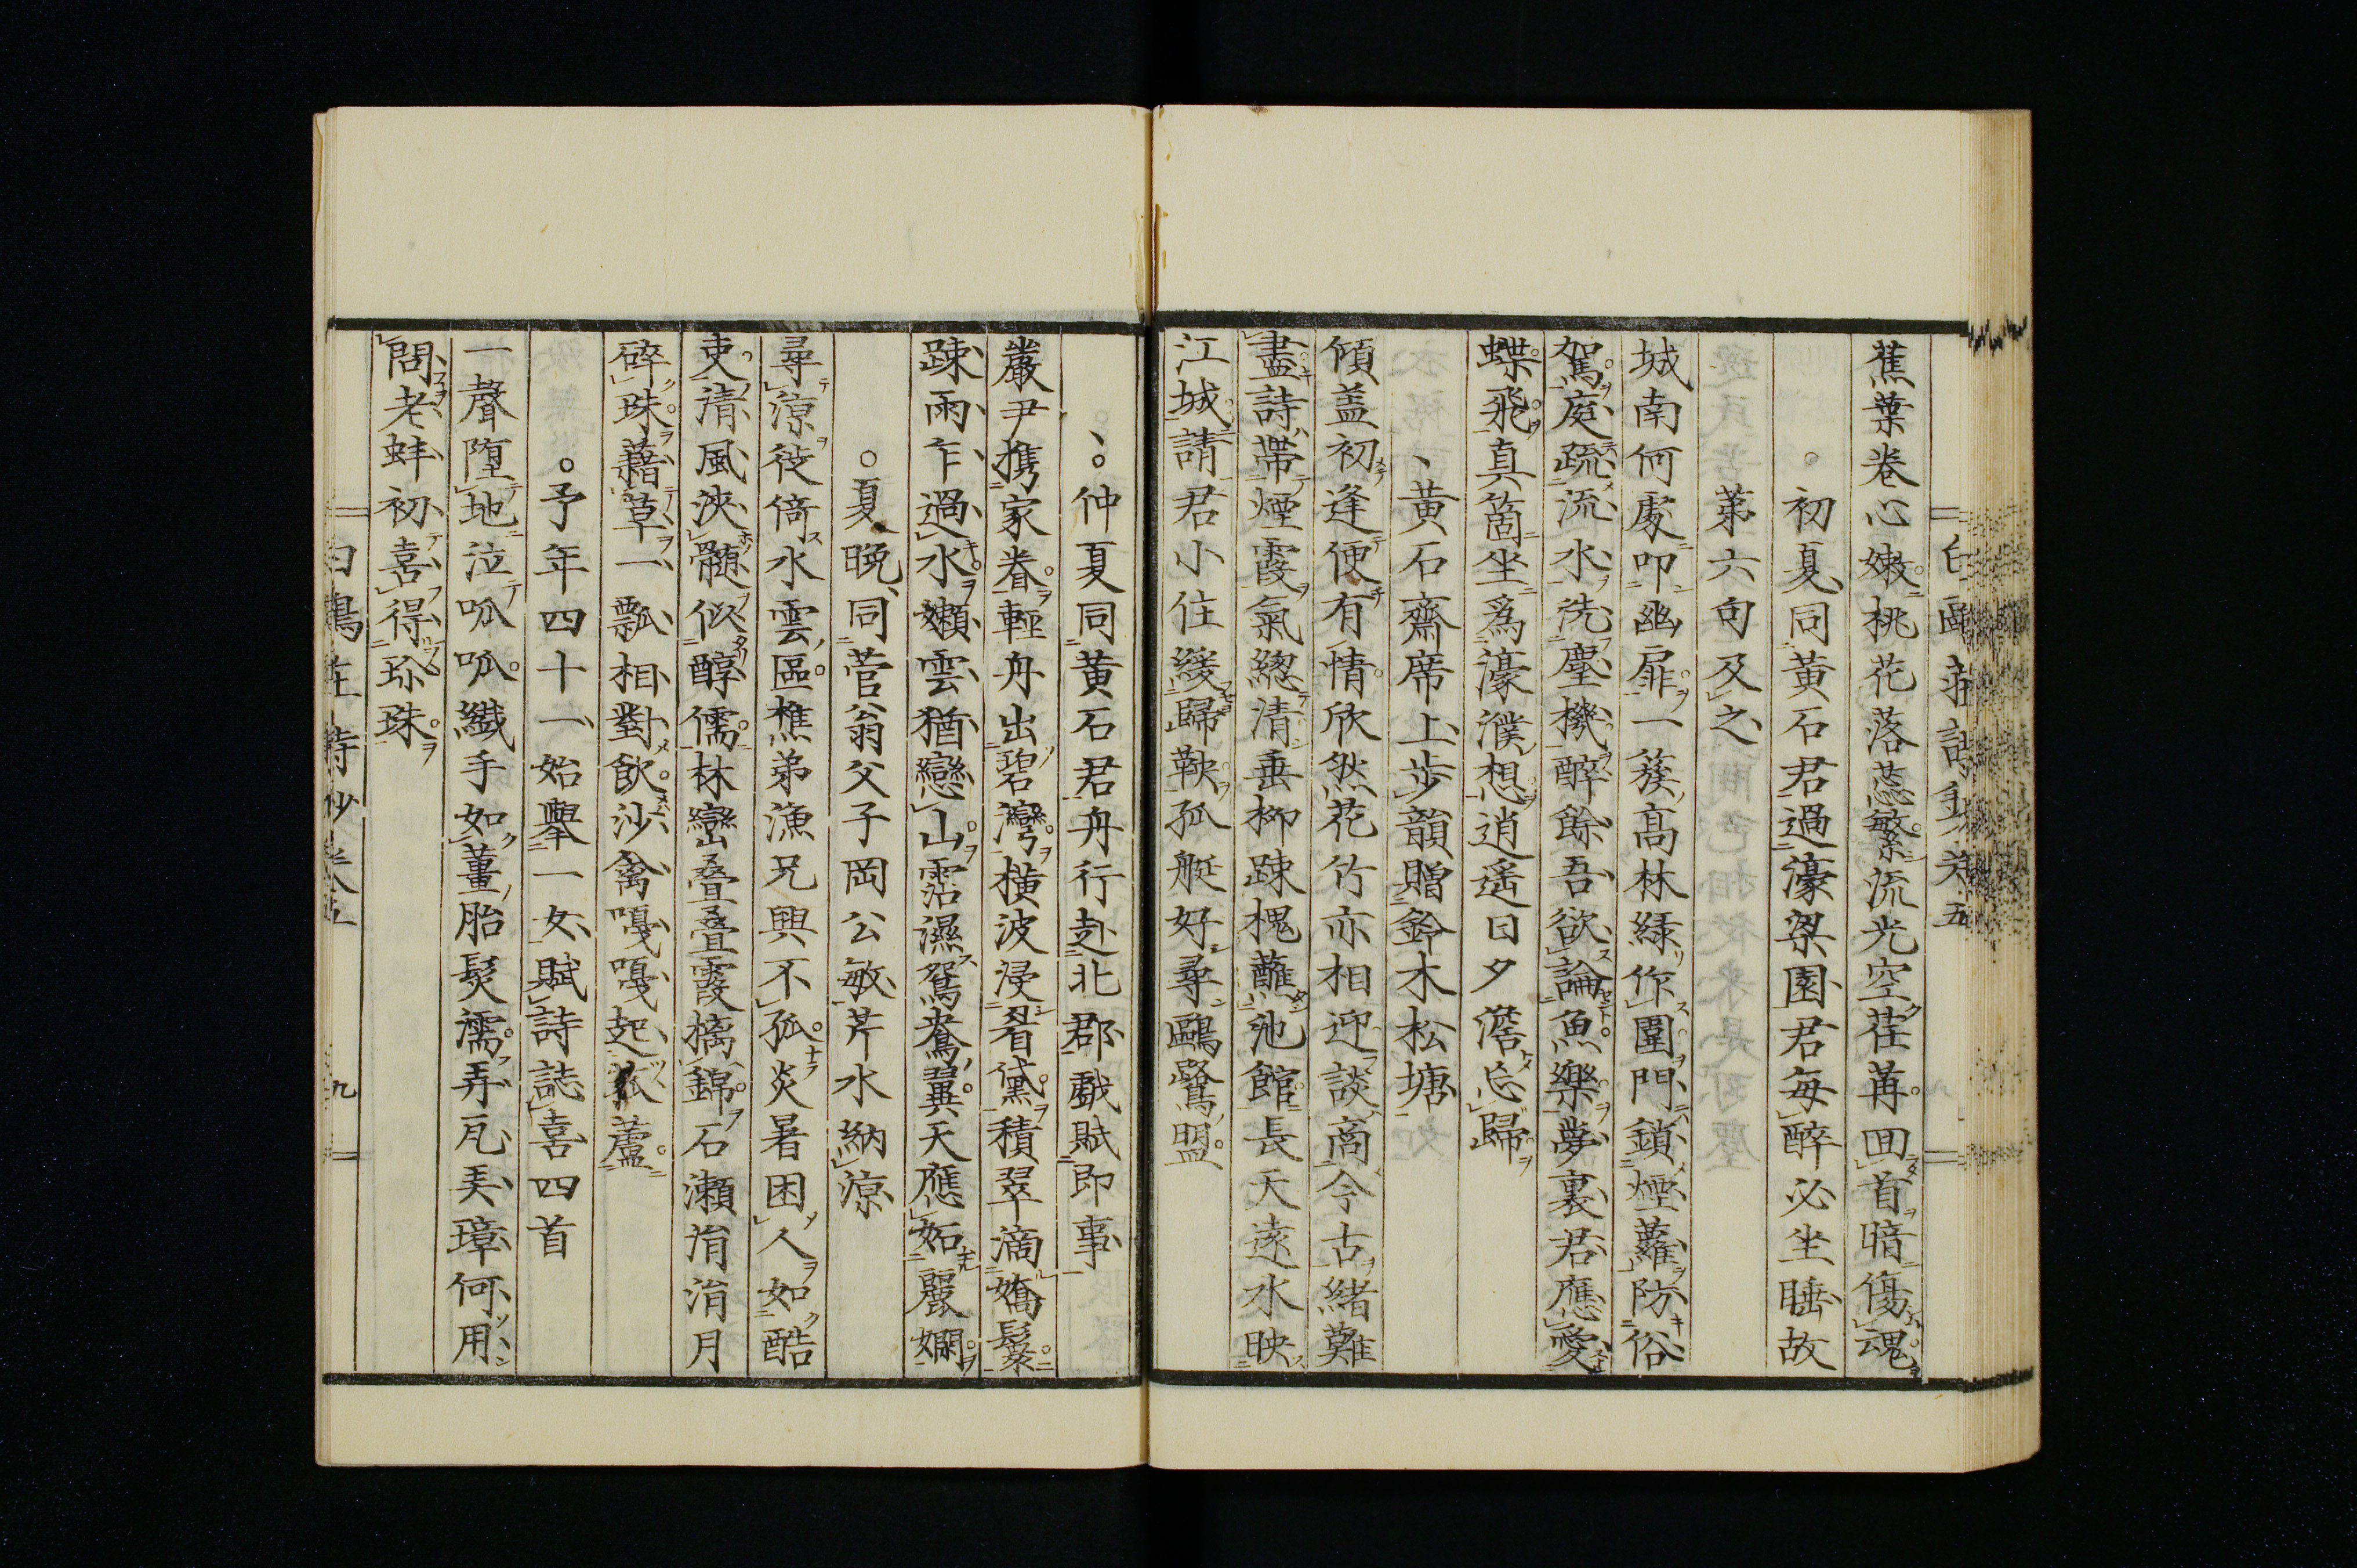 蕉葉卷心嫩桃花落蕊繁流光空荏苒回首暗傷魂
初夏同黃石君過濠梁園君每醉必坐睡故
第六句及之
城南何處叩幽扉一簇高林綠作圍門鎖煙蘿防俗
駕庭疏流水洗塵機醉餘吾欲論魚樂夢裏君應愛
蝶飛真箇坐爲濠濮想逍遙日夕澹忘歸
黃石齋席上步韻贈鈴木松塘
傾盖初逢便有情欣然花竹亦相迎談商今古緒難
盡詩帶煙霞氣總清垂柳疎槐蘸池館長天遠水映
江城請君小住緩歸鞅孤艇好尋鷗鷺盟
仲夏同黃石君舟行赴北郡戲賦即事
巖尹携家眷輕舟出碧灣橫波浸眉黛積翠滴嬌鬟
疎雨乍過水嬾雲猶戀山霑濕鴛鴦翼天應妬麗嫻
夏晩同菅翁父子岡公敏芹水納涼
尋涼徙倚水雲區樵弟漁兄興不孤炎暑困人如酷
吏清風浹髓似醇儒林巒叠叠霞摛錦石瀨涓涓月
碎珠藉草一瓢相對飲沙禽嘎嘎起菰蘆
予年四十一始擧一女賦詩誌喜四首
一聲墮地泣呱呱纎手如荑胎髮濡弄瓦弄璋何用
問老蚌初喜得珍珠
白鷗莊詩鈔卷五
九